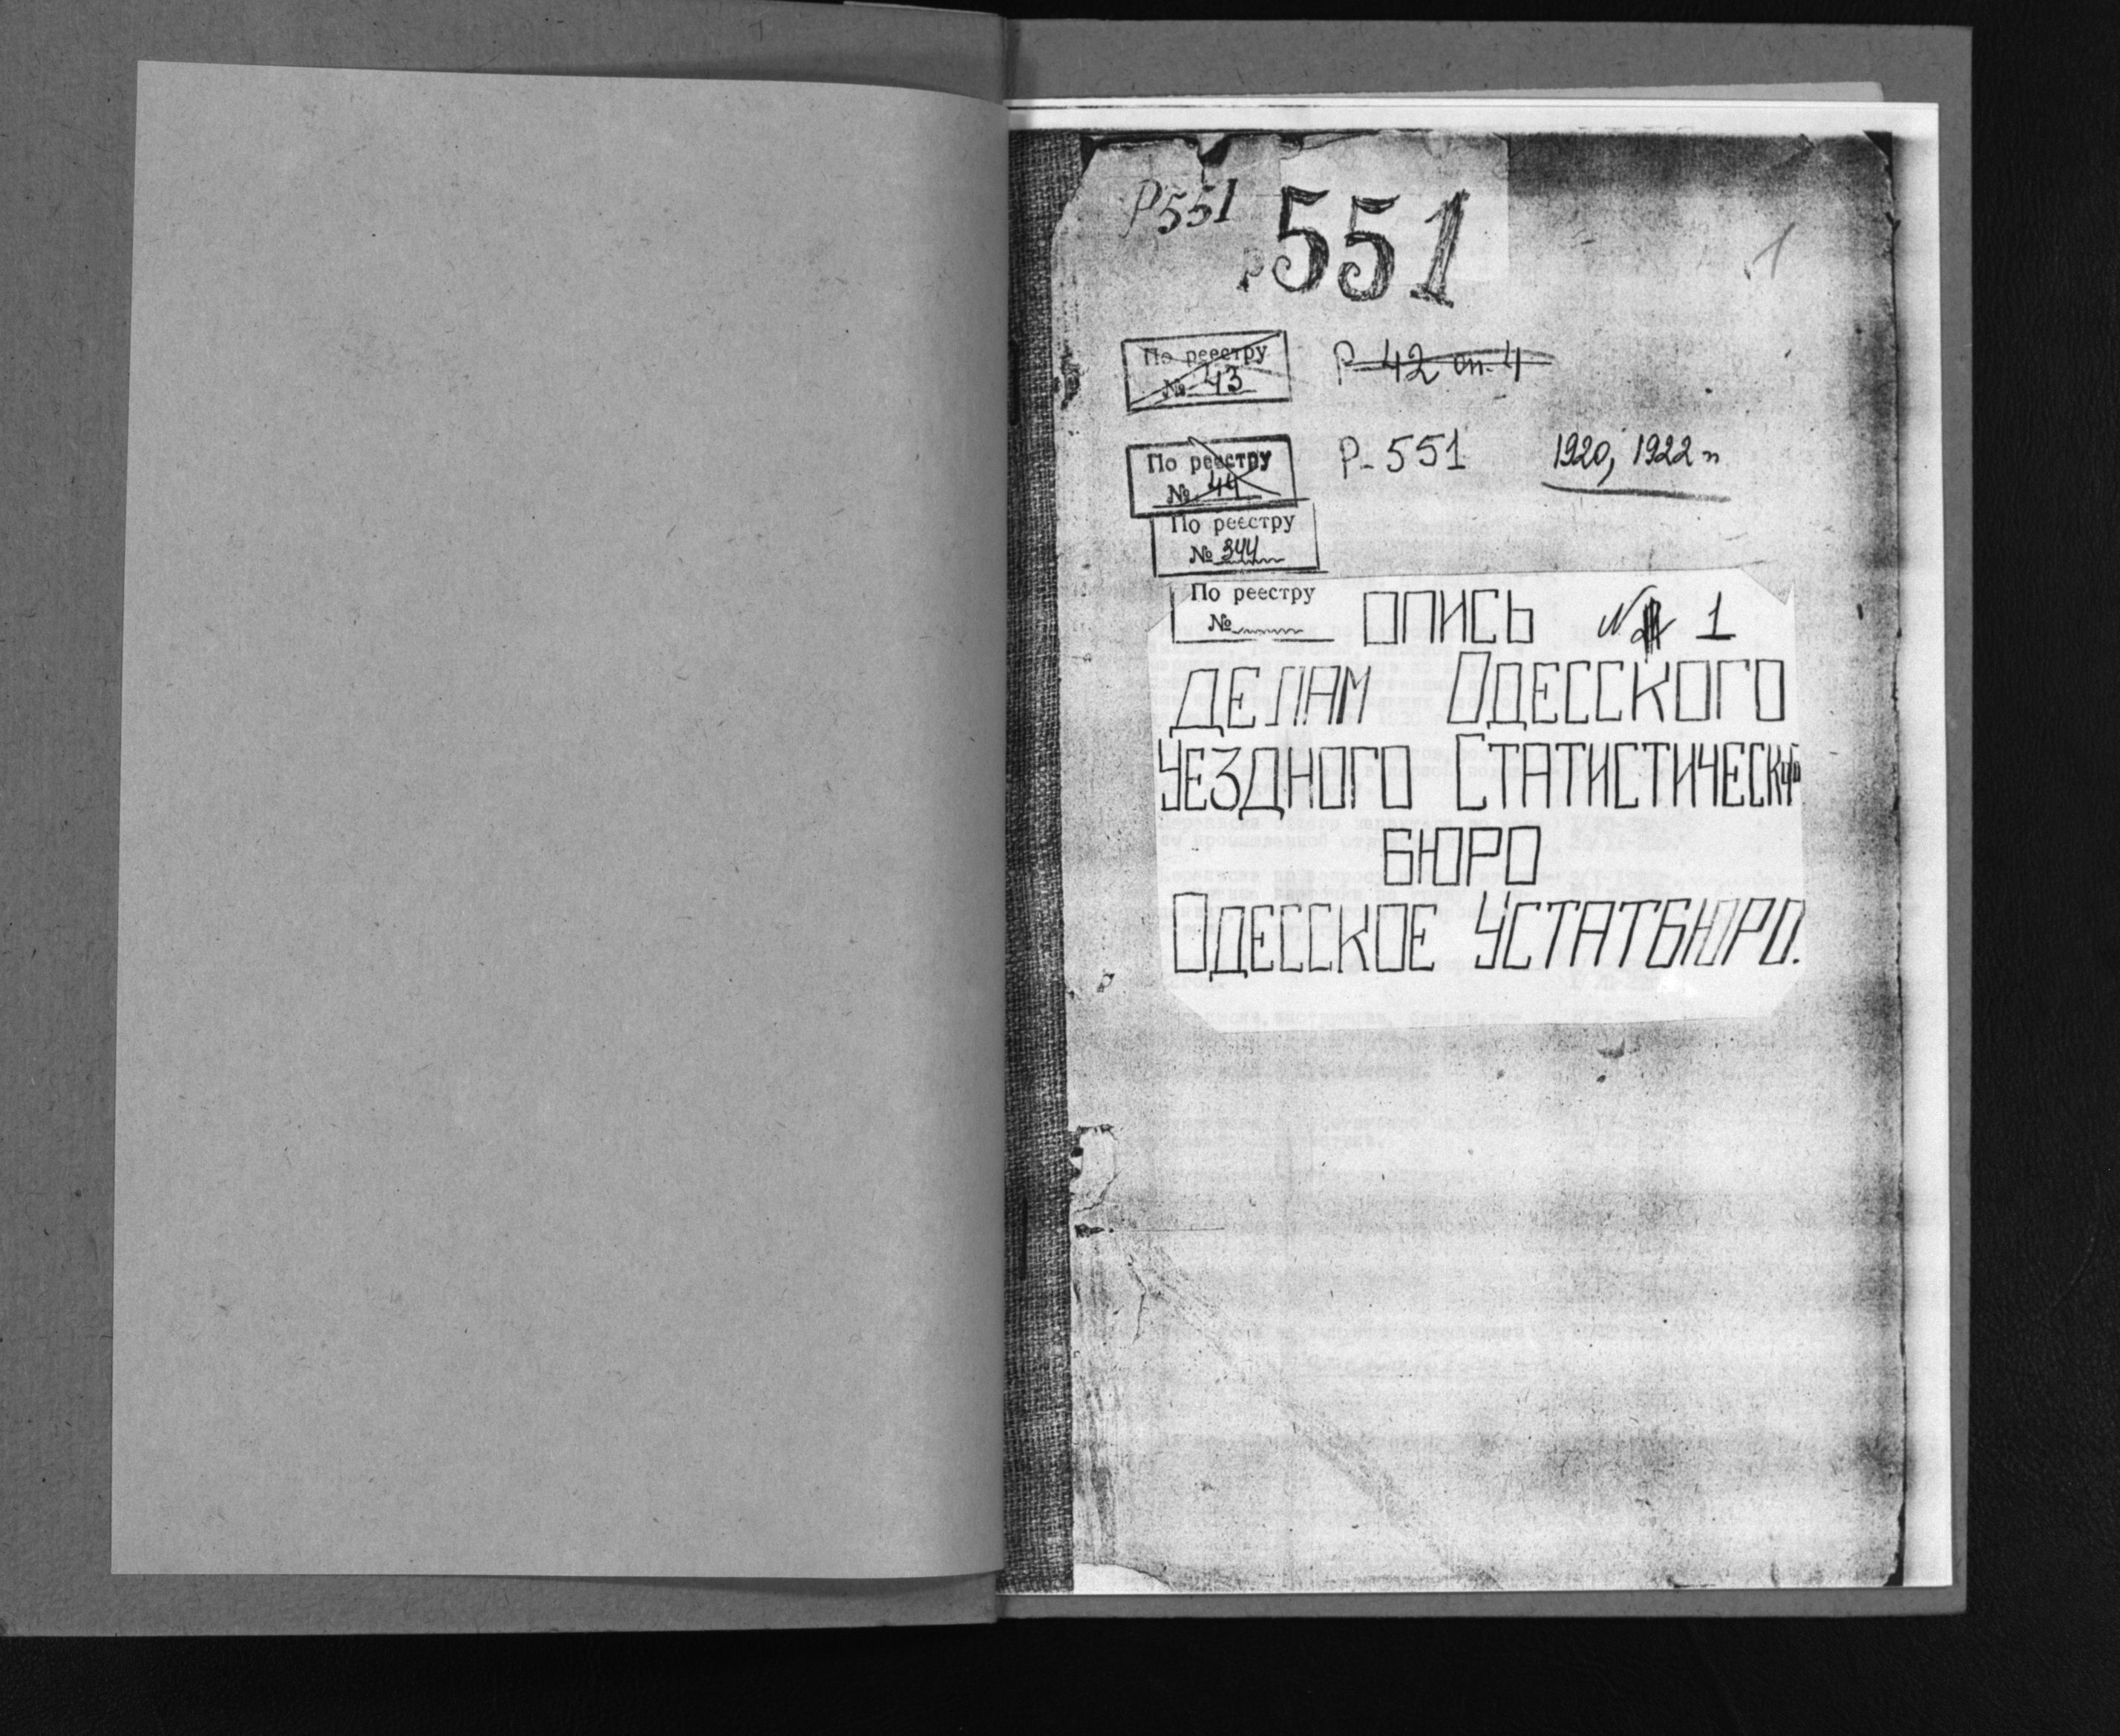 Р551
р551
1
По реестру
№ 43
Р-42 оп. 4
По реестру
№ 44
Р-551 1920, 1922 гг
По реестру
№ 344
По реестру
№
ОПИСЬ № 1
ДЕЛАМ ОДЕССКОГО
УЕЗДНОГО СТАТИСТИЧЕСКОГО
БЮРО
ОДЕССКОЕ УСТАТБЮРО.